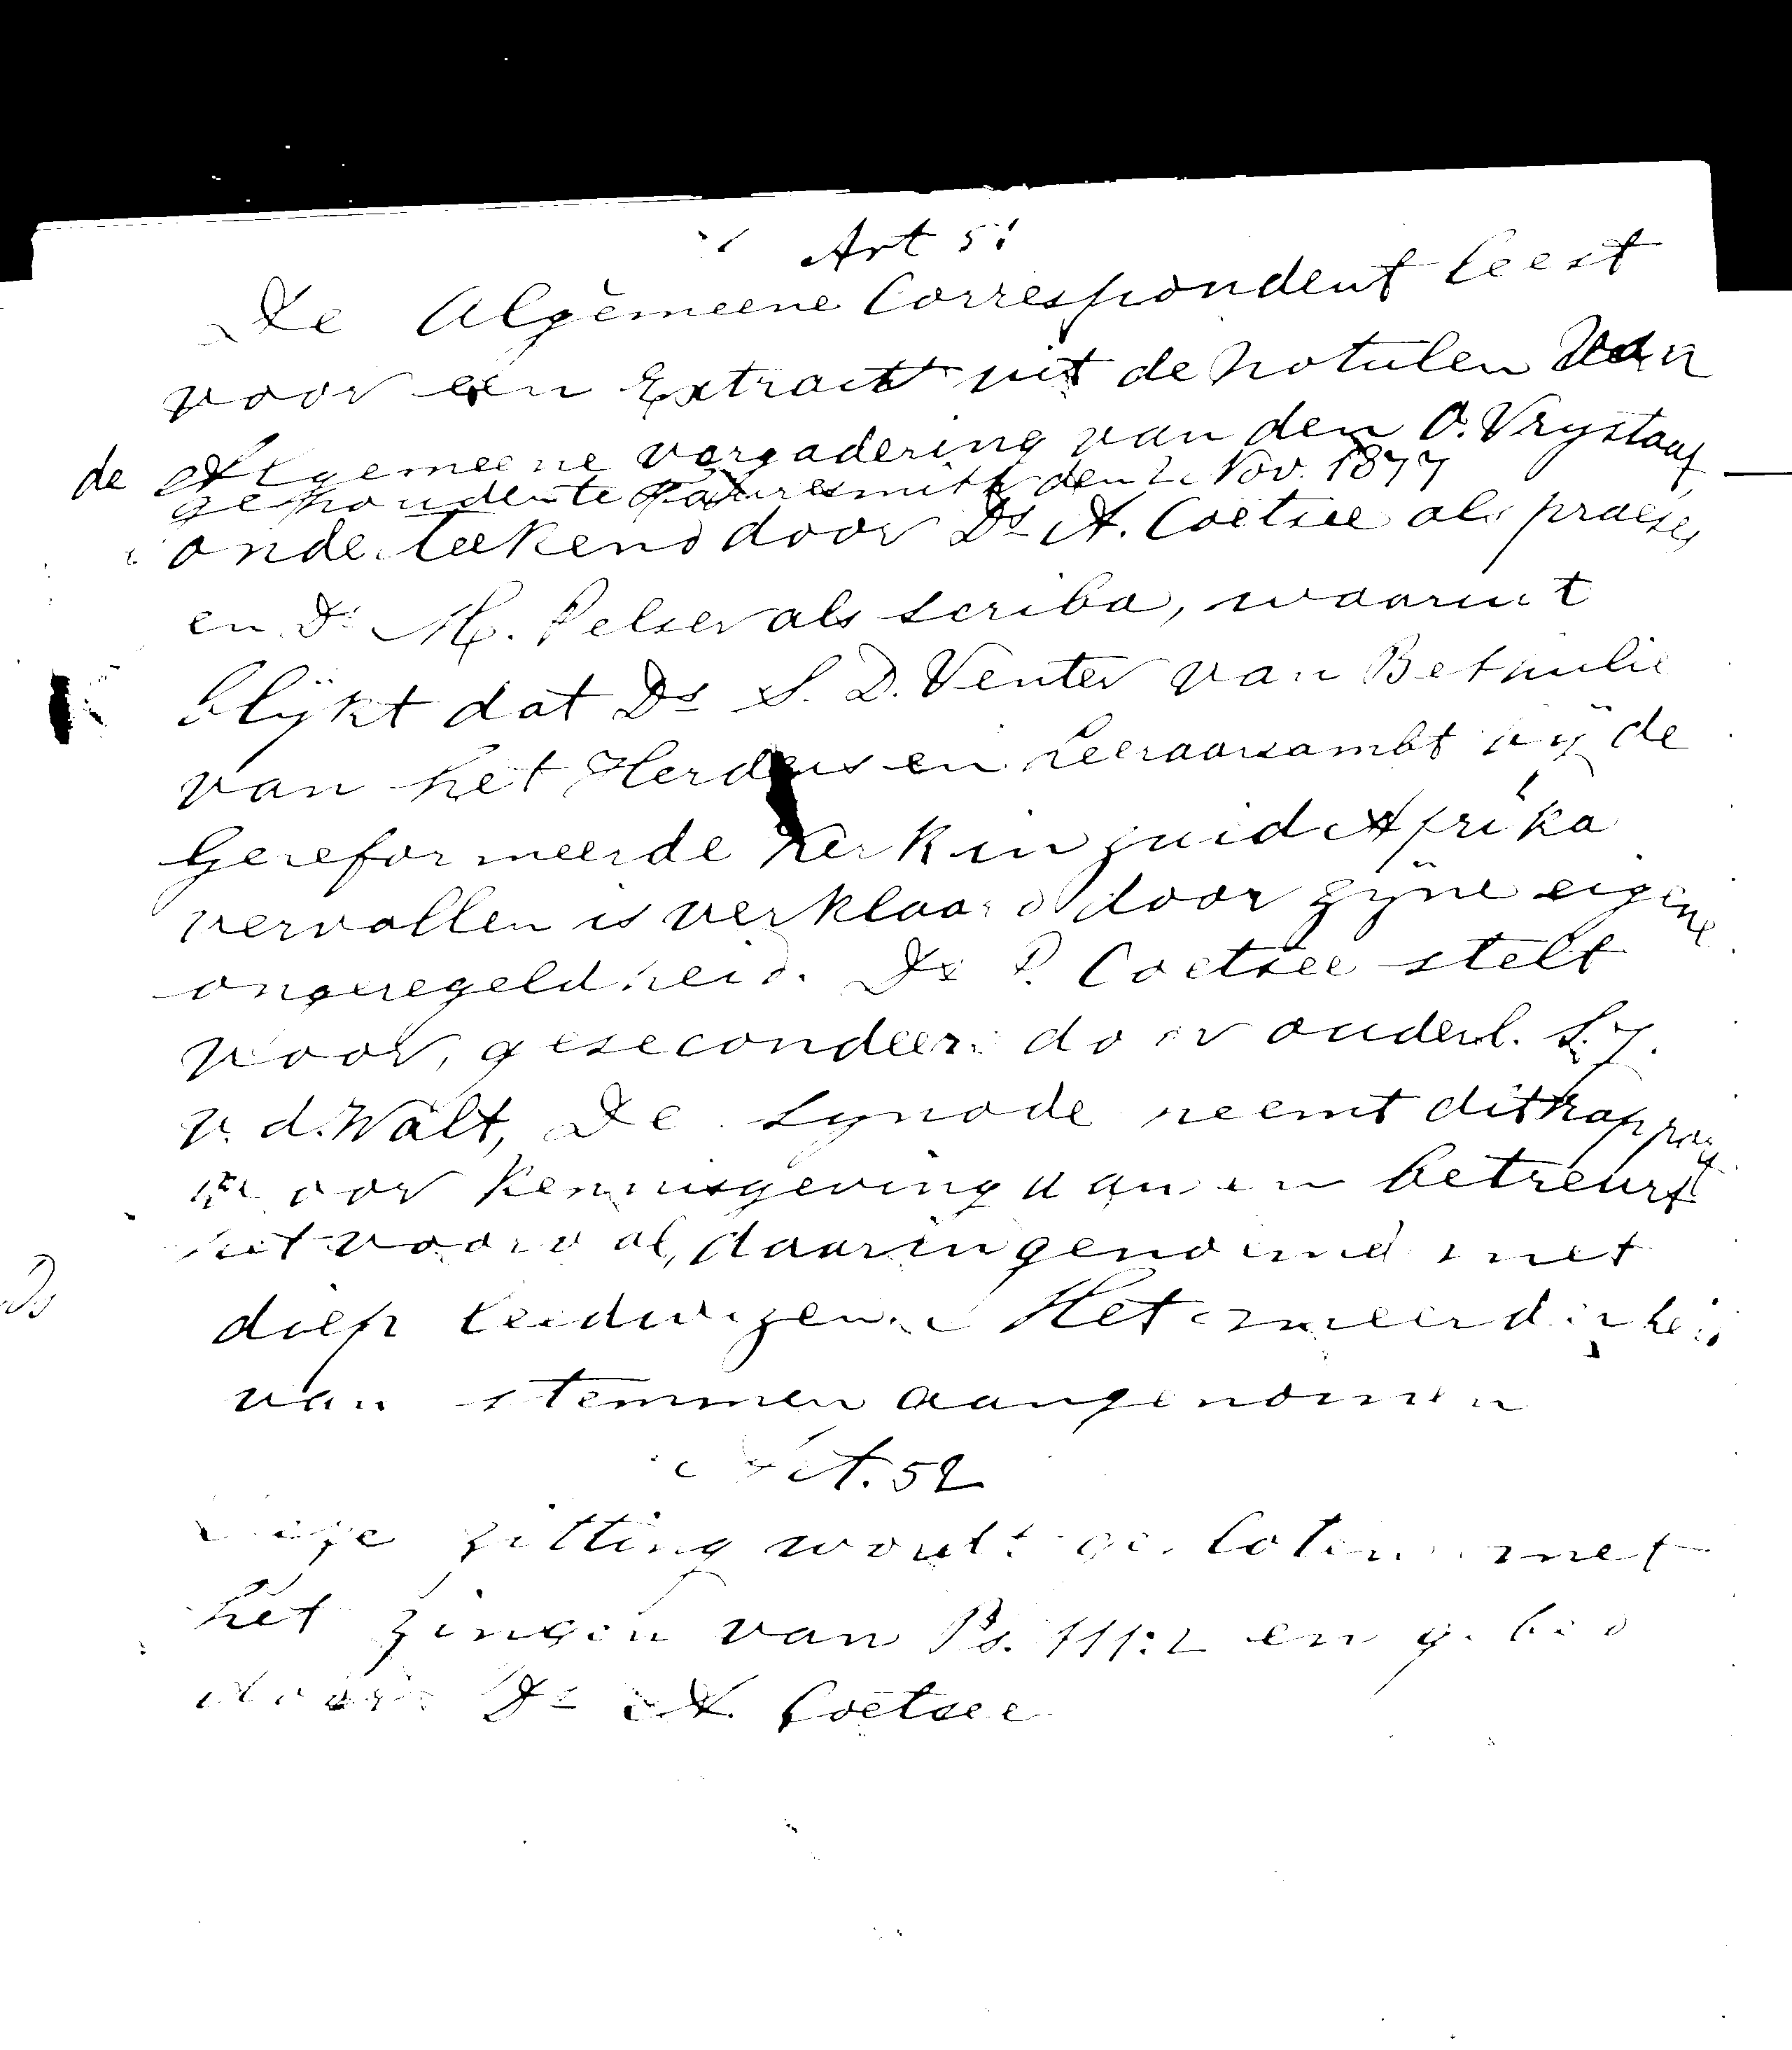 Art 51
De Algemeene Correspondent leest
voor een Extract uit de Notulen van
de Algemeene vergadering van den O. Vrystaat
gehouden te Fauresmith den 2 Nov. 1877
onderteekend door Ds A. Coetsee als praeses
en Ds M. Pelser als scriba, waaruit
blijkt dat Ds S. D. Venter van Bethulie
van het Herders en Leeraarsambt bij de
Gereformeerde Kerk in Zuid Afrika
vervallen is verklaard door zijne eigene
ongeregeldheid. Ds P. Coetsee stelt
voor, gesecondeerd door ouderl. S. J.
v. d. Walt, De Synode neemt dit rapport
voor kennisgeving aan en betreurt
het voorval, daarin genoemd met
diep leedwezen. Met meerderheid
van stemmen aangenomen
Art. 52
Deze zitting wordt gesloten met
het zingen van Ps. 111:2 en gebed
door Ds A. Coetsee